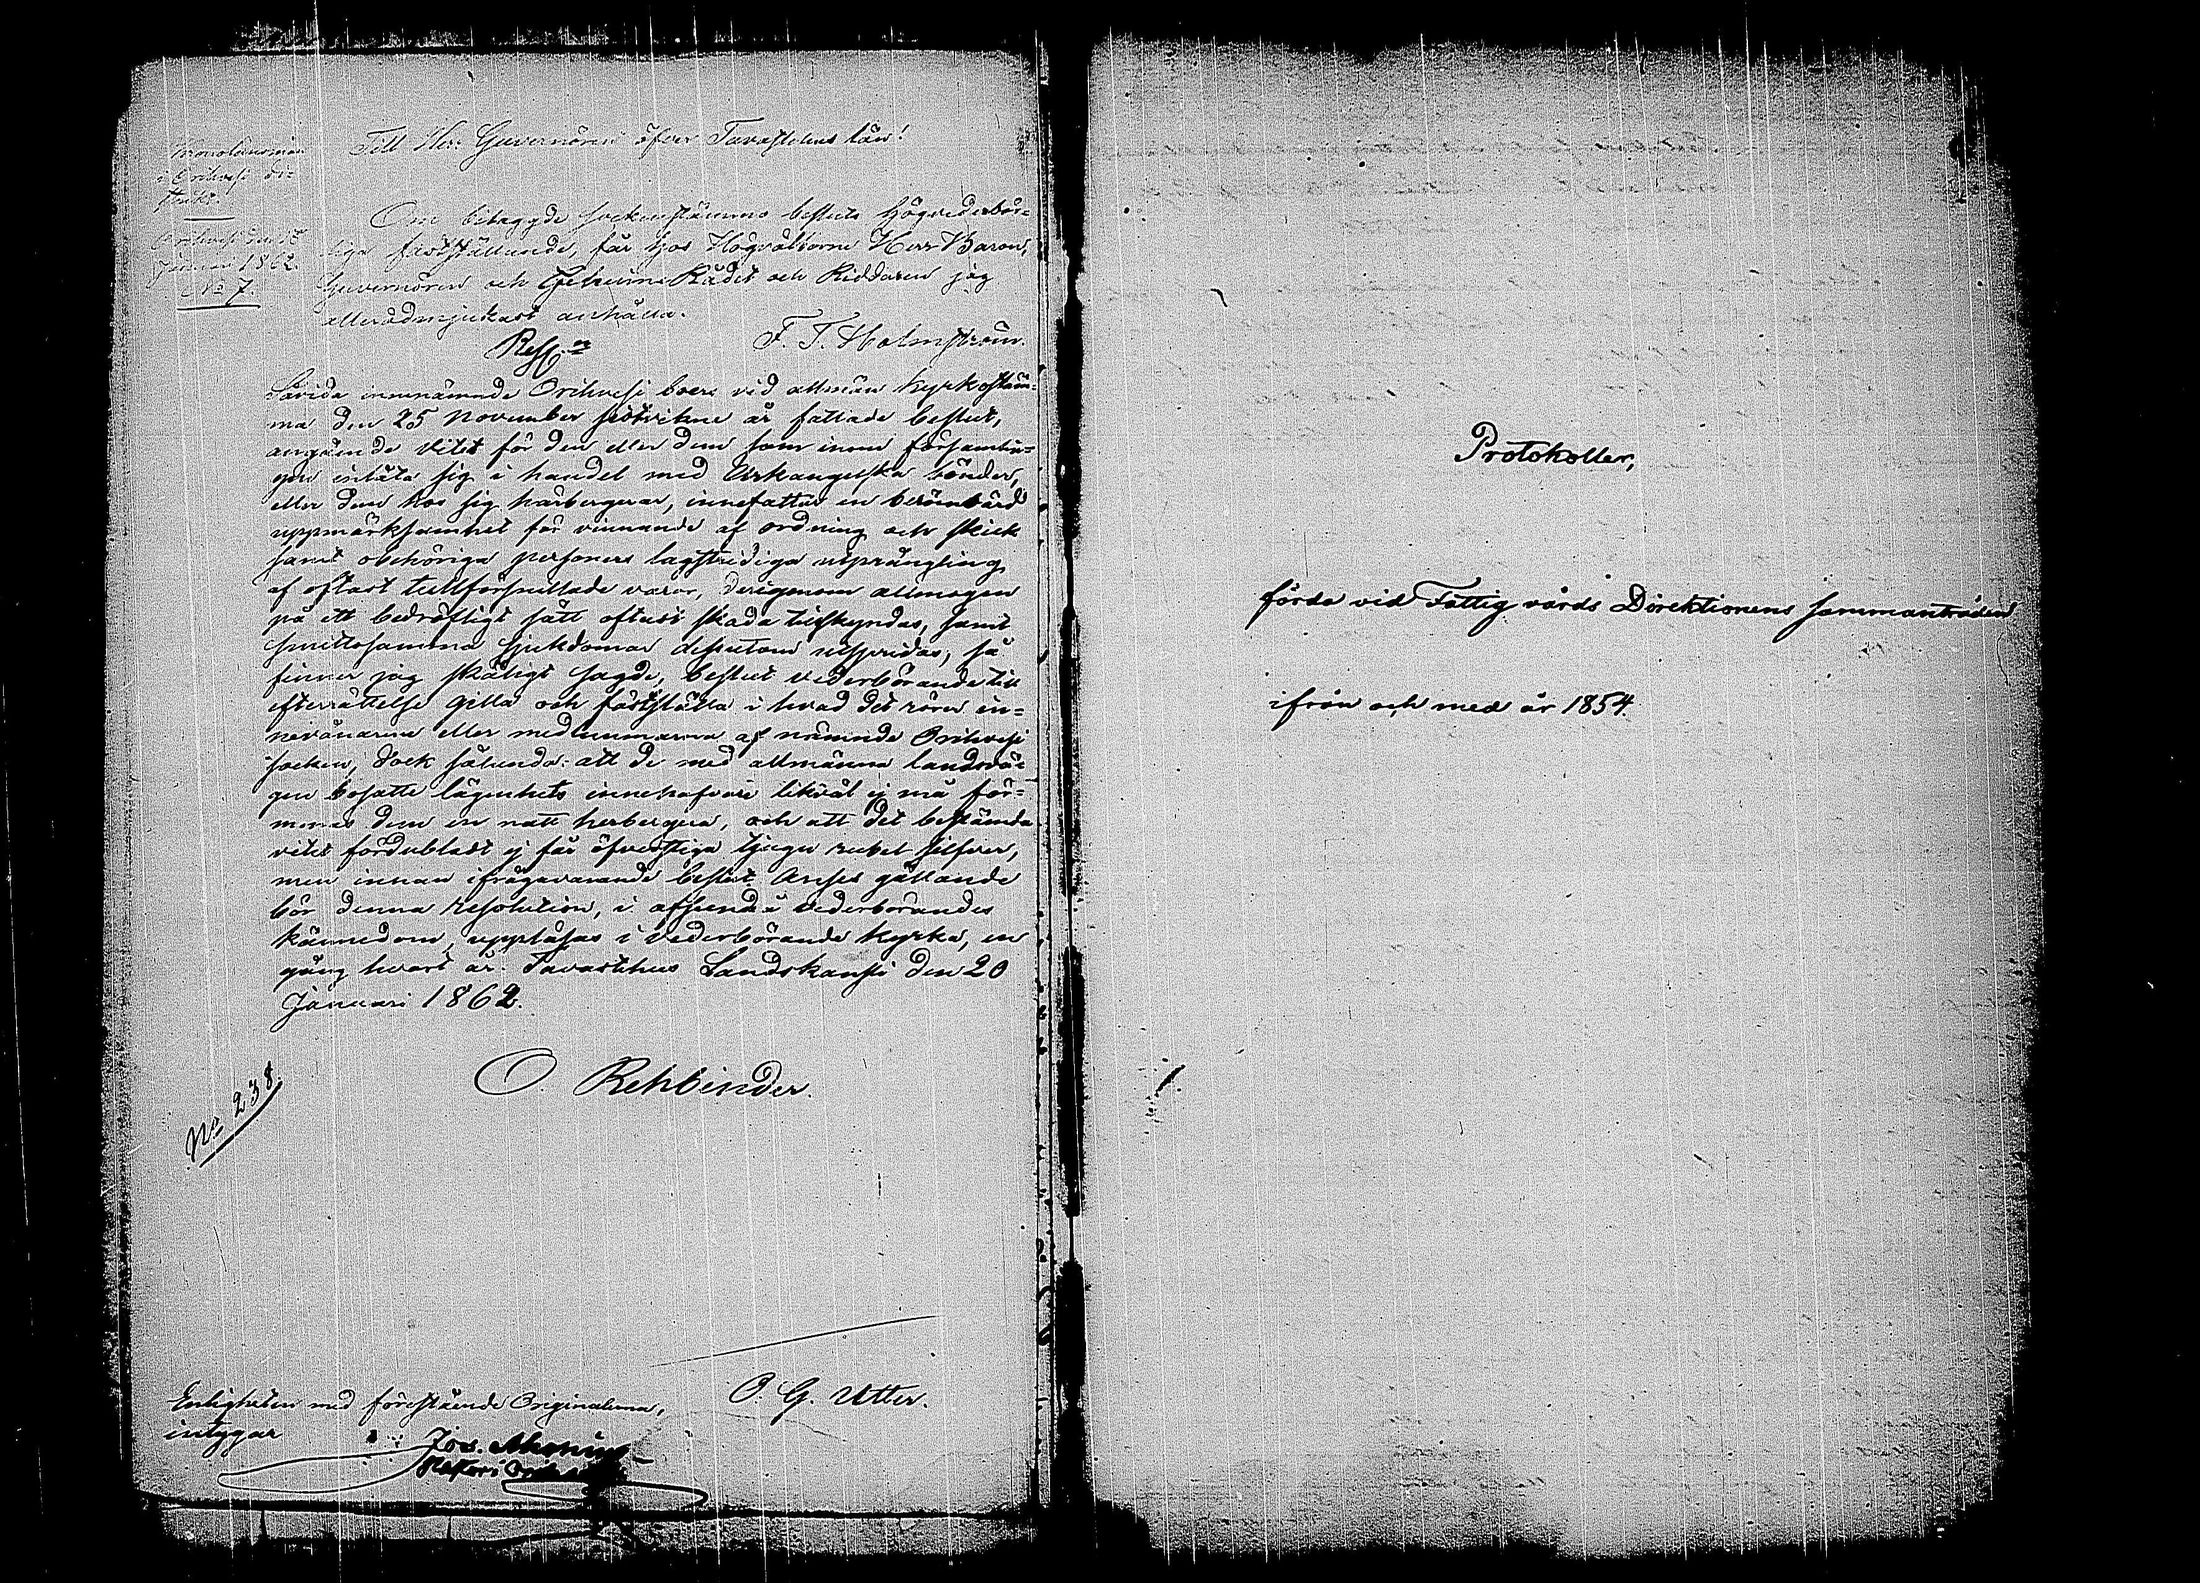 Kronolänsman
i Orihvesi di-
strikt.
Orihvesi den 18
Januari 1862.
No 7
Till Herr Guvernören öfver Tavastehus län!
Om bilagde sockenstämmo besluts Högvederbör-
liga fastställande, får hos Högvälborne Herr Baron,
Guvernören och Geheime Rådet och Riddaren jag
allerödmjukast anhålla.
F. T. Holmström.
Resol:n
Såvida innenämnde Orihvesi boers vid allmän Kyrkostäm-
ma den 25 November sistvikne år fattade beslut,
angående vitet för den eller dem som inom församlin-
gen inlåta sig i handel med Arkangelska bönder,
eller dem hos sig härbergerar, innefattar en berömvärd
uppmärksamhet för vinnande af ordning och skick
samt obehöriga personers lagstridiga utprångling
af oftast tullförsnillade varor, derigenom allmogen
på ett bedröfligt sätt oftast skada tillskyndas, samt
smittosamma sjukdomar dessutom utspridas, så
finner jag skäligt sagde beslut vederbörande till
efterrättelse gilla och fastställa i hvad det rörer in-
nevånarne eller medlemmarna af nämnde Orihvesi
socken, dock sålunda: att de med allmänna landsvä-
gen bosatte lägenhets innehafvare likväl ej må för-
menas dem en natt herbergera, och att det bestämda
vitet fördubladt ej får öfverstiga tjugu rubel silfver,
men innan ifrågavarande beslut anses gällande
bör denna resolution, i afseende å vederbörandes
kännedom, uppläsas i vederbörande kyrka, en
gång hvart år. Tavastehus Landskansli den 20
Januari 1862.
O. Rehbinder.
No 238.
O. G. Utter.
Enligheten med förestående Originalerna,
intygar
Jos. Ahonius
Protokoller,
förda vid Fattig vårds Direktionens sammanträden
ifrån och med år 1854.